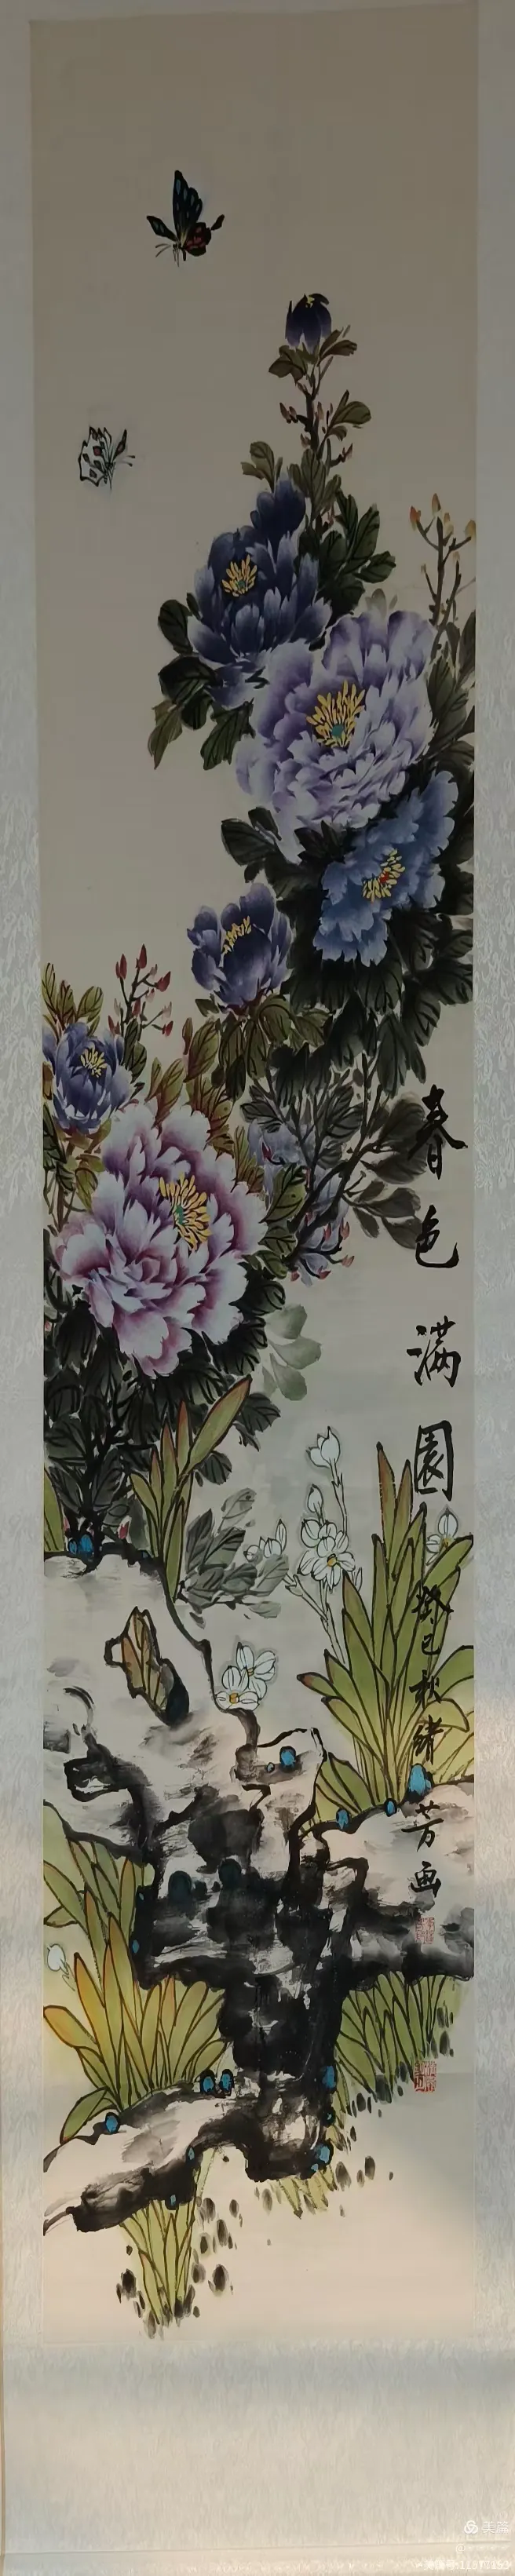 春色满園
癸巳秋绪芳画